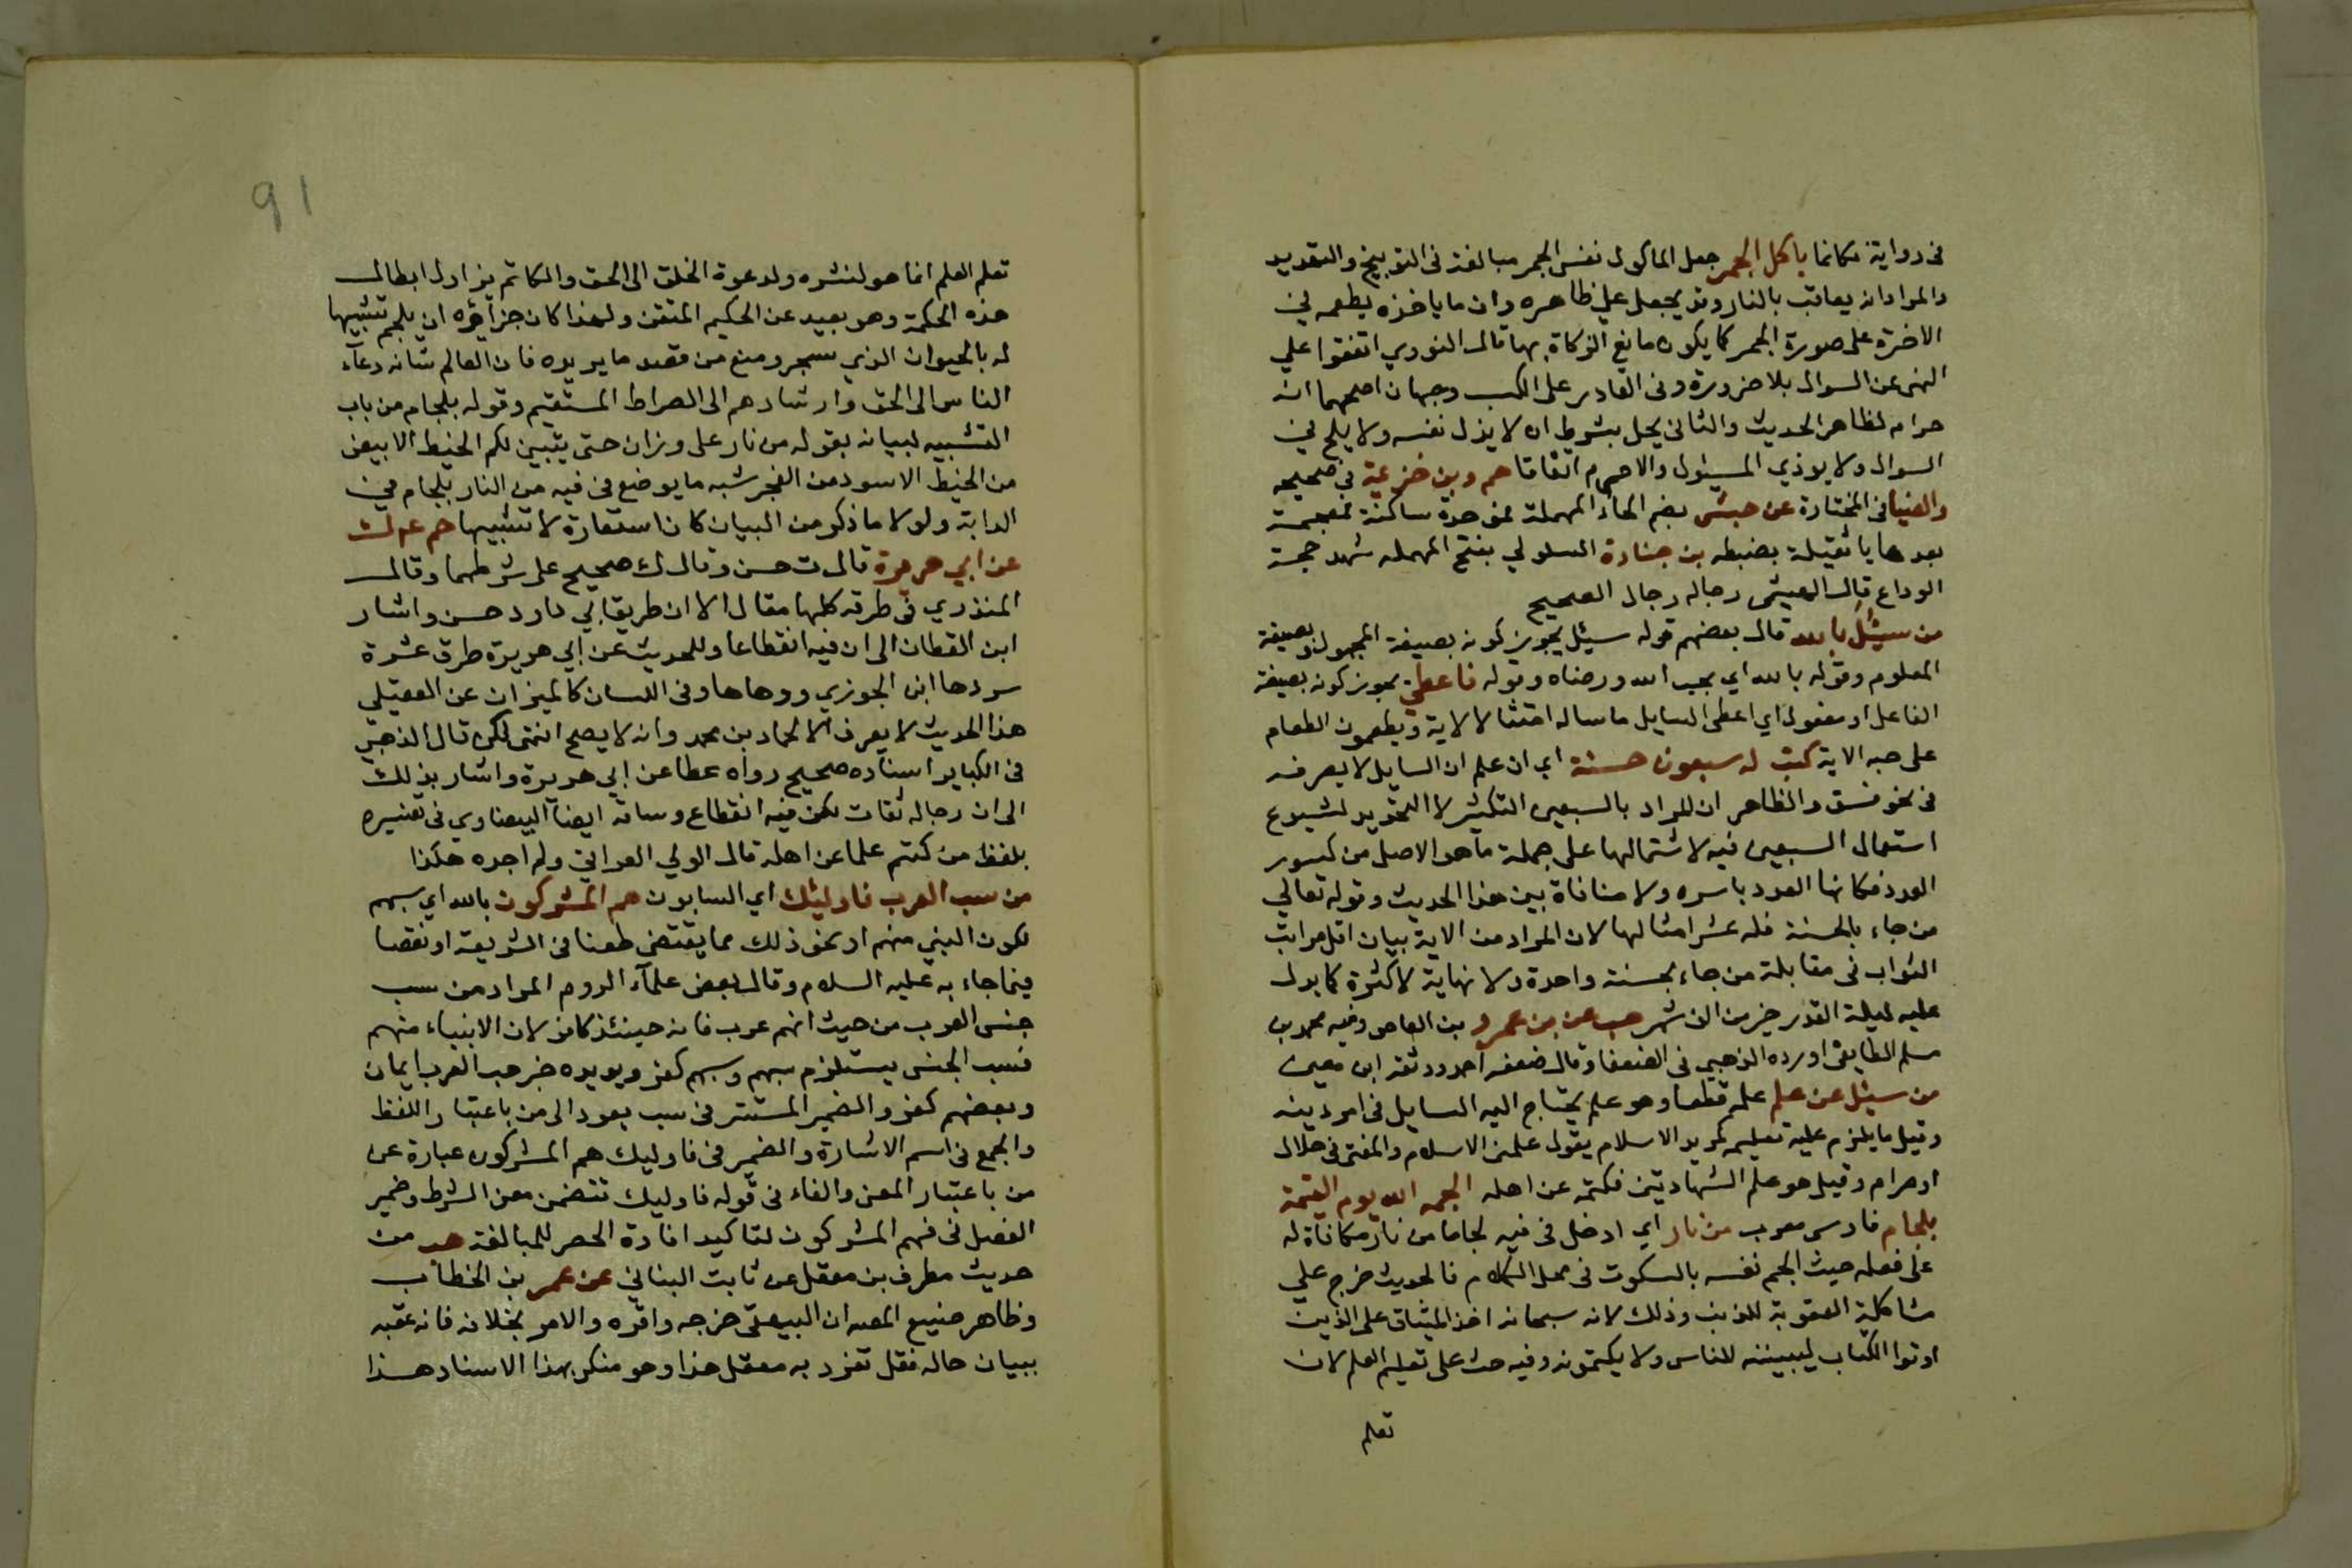 في رواية فكانما ياكل الجمر جعل الماكول نفس الجمر مبالغة في التوبيخ والتهديد
والمراد انه يعاقب بالنار وقد يجعل علي ظاهره وان ما ياخذه يطعمه في
الاخرة على صورة الجمر كما يكون مانع الزكاة بها قال النووي اتفقوا علي
النهي عن السوال بلا ضرورة وفي القادر على الكسب وجهان اصحهما انه
حرام لظاهر الحديث والثاني يحل بشرط ان لا يذل نفسه ولا يلح في
السوال ولا يوذي المسئول والا حرم اتفاقا حم وبن خزيمة في صحيحه
والضيا في المختارة عن حبشى بضم الحاء المهملة فموحدة ساكنة فمعجمة
بعدها يا ثقيلة بضبطه بن جنادة السلولي بفتح المهمله شهد حجة
الوداع قال الهيثمى رجاله رجال الصحيح
من سئل بالله قال بعضهم قوله سئل يجوز كونه بصيغة المجهول وبصيغة
المعلوم وقوله بالله اي بحب الله ورضاه وقوله فاعطى يجوز كونه بصيغة
الفاعل او مفعول اي اعطى السايل ما ساله امتثالا لاية ويطعمون الطعام
على حبه الاية كتب له سبعون حسنة اي ان علم ان السايل لا يصرفه
في نحو فسق والظاهر ان المراد بالسبعين التكثير لا التحديد لشيوع
استعمال السبعين فيه لاشتمالها على جملة ما هو الاصل من كسور
العدد فكانها العدد باسره ولا منافاة بين هذا الحديث وقوله تعالي
من جاء بالحسنة فله عشر امثالها لان المراد من الاية بيان اقل مراتب
الثواب في مقابلة من جاء بحسنة واحدة ولا نهاية لاكثره كما يدل
عليه ليلة القدر خير من الف شهر هب عن بن عمرو بن العاص وفيه محمد بن
مسلم الطايفي اورده الذهبي في الضعفا وقال ضعفه احمد ووثقه ابن معين
من سئل عن علم علمه قطعا وهو علم يحتاج اليه السايل في امر دينه
وقيل ما يلزم عليه تعليمه كمريد الاسلام يقول علمني الاسلام والمفتي في حلال
او حرام وقيل هو علم الشهادتين فكتمه عن اهله الجمه الله يوم القيمة
بلجام فارسى معرب من نار اي ادخل في فيه لجاما من نار مكافاة له
على فعله حيث الجم نفسه بالسكوت في محل الكلام فالحديث خرج علي
مشاكلة العقوبة للذنب وذلك لانه سبحانه اخذ الميثاق على الذين
اوتوا الكتاب ليبيننه للناس ولا يكتمونه وفيه حث على تعليم العلم لان
تعلم
91
تعلم العلم انما هو لنشره ولدعوة الخلق الى الحق والكاتم يزاول ابطال
هذه الحكمة وهو بعيد عن الحكيم المتقن ولهذا كان جزاؤه ان يلجم تشبيها
له بالحيوان الذي سخر ومنع من قصد ما يريده فان العالم شانه دعآء
الناس الى الحق وارشادهم الى الصراط المستقيم وقوله بلجام من باب
التشبيه لبيانه بقوله من نار على وزان حتى يتبين لكم الخيط الابيض
من الخيط الاسود من الفجر شبه ما يوضع في فيه من النار بلجام في
الدابة ولولا ما ذكر من البيان كان استعارة لا تشبيها حم عم ك
عن ابي هريرة قال ت حسن وقال ك صحيح على شرطهما وقال
المنذري في طرقه كلها مقال الا ان طريق ابي داود حسن واشار
ابن القطان الى ان فيه انقطاعا وللحديث عن ابي هريرة طرق عشرة
سردها ابن الجوزي ووهاها وفي اللسان كالميزان عن العقيلي
هذا الحديث لا يعرف الا لحماد بن محمد وانه لا يصح انتهى لكن قال الذهبي
في الكباير اسناده صحيح رواه عطا عن ابي هريرة واشار بذلك
الى ان رجاله ثقات لكن فيه انقطاع وساقه ايضا البيضاوي في تفسيره
بلفظ من كتم علما عن اهله قال الولي العراقي ولم اجده هكذا
من سب العرب فاوليئك اي السابون هم المشركون بالله اي سبهم
لكون النبي منهم او نحو ذلك مما يقتضي طعنا في الشريعة او نقصا
فيما جاء به عليه السلام وقال بعض علمآء الروم المراد من سب
جنس العرب من حيث انهم عرب فانه حينئذ كافر لان الانبياء منهم
فسب الجنس يستلزم سبهم وسبهم كفر ويويده خبر حب العرب ايمان
وبغضهم كفر والضمير المستتر في سب يعود الى من باعتبار اللفظ
والجمع في اسم الاشارة والضمير في فاوليك هم المشركون عبارة عن
من باعتبار المعنى والفاء في قوله فاوليك تتضمن معنى الشرط وضمير
الفصل في فهم المشركون لتاكيد افادة الحصر للمبالغة هب من
حديث مطرف بن معقل عن ثابت البناني عن عمر بن الخطاب
وظاهر صنيع المصه ان البيهقى خرجه واقره والامر بخلافه فانه عقبه
ببيان حاله فقل تفرد به معقل هذا وهو منكر بهذا الاسناد هذا